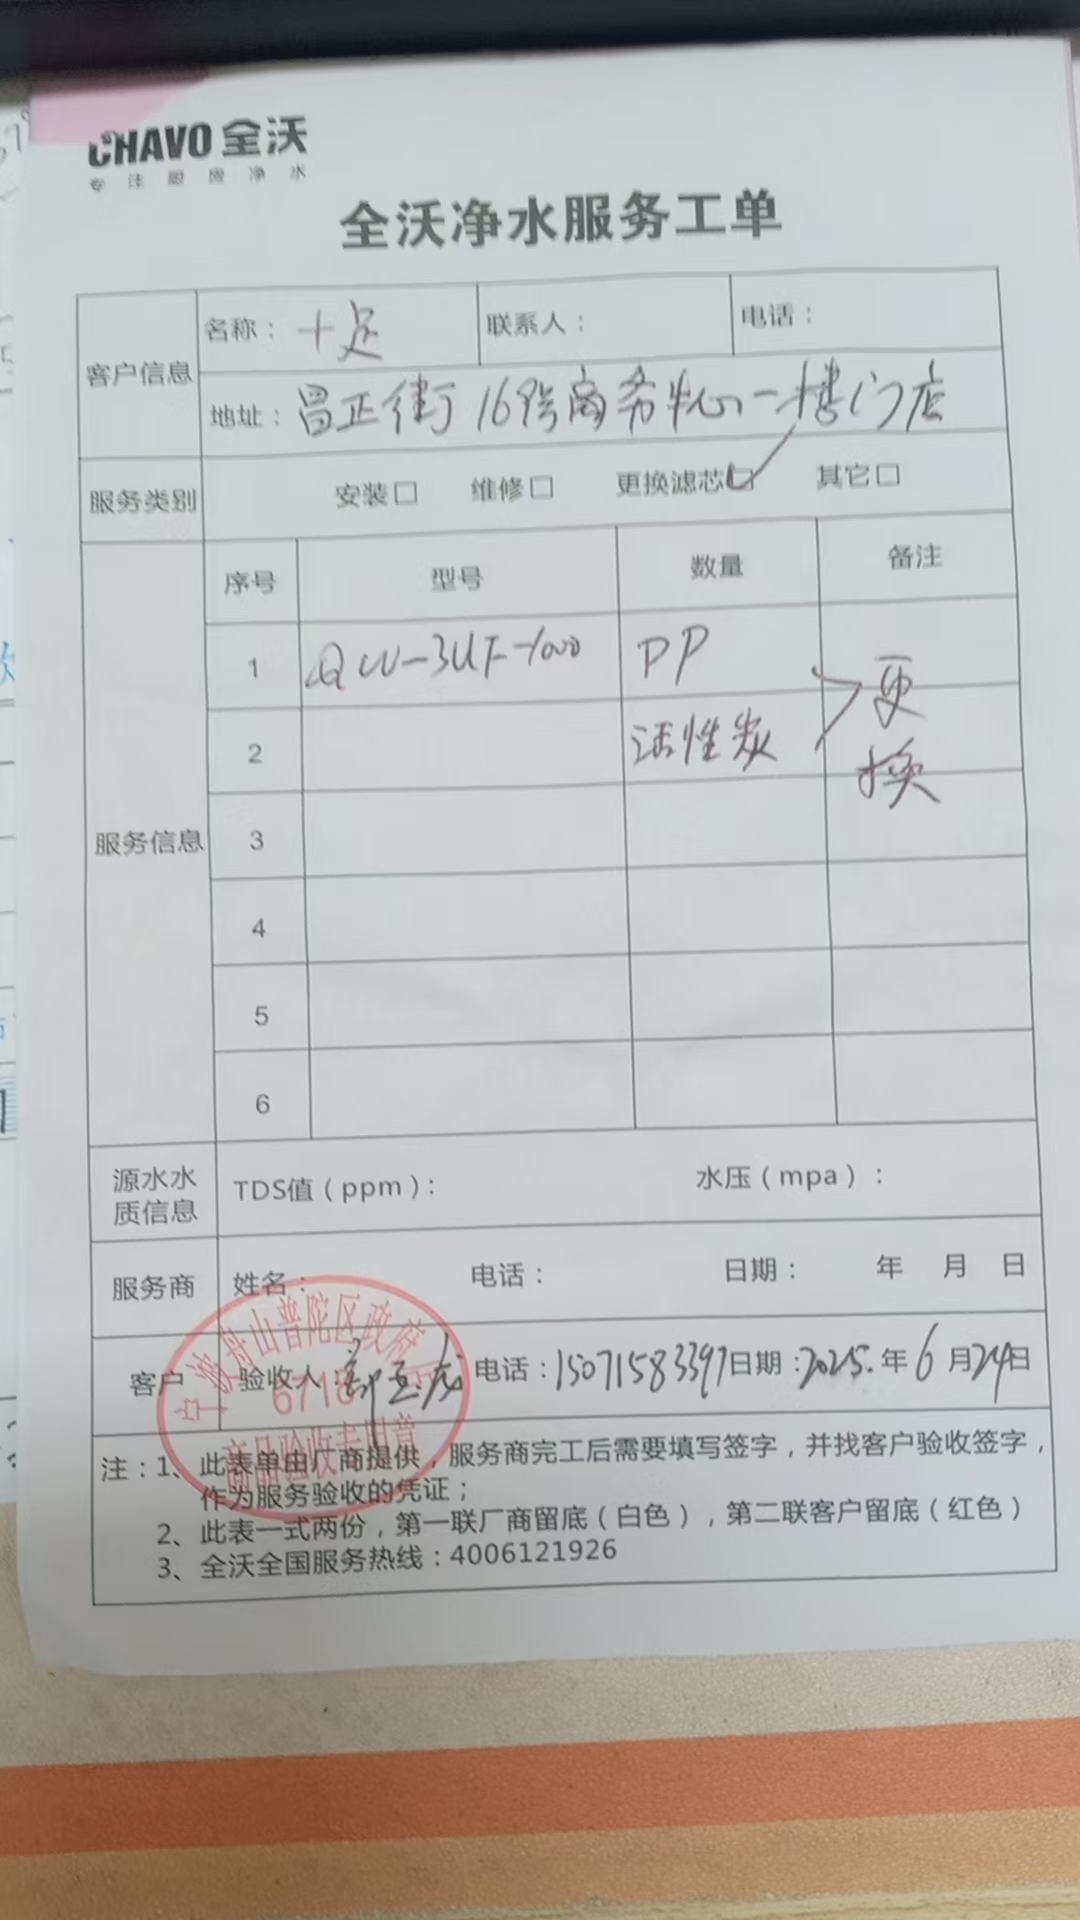 CHAVO 全沃
专注厨房净水
全沃净水服务工单
客户信息 名称：十足 联系人： 电话：
地址：昌正街169号商务中心一楼门店
服务类别 安装□ 维修□ 更换滤芯□ 其它□
服务信息 序号 型号 数量 备注
1 QW-3UF-1000 PP 更换
2 活性炭
3
4
5
6
源水水质信息 TDS值（ppm）： 水压（mpa）：
服务商 姓名： 电话： 日期： 年 月 日
客户 验收人： 电话：15071583397 日期：2025.年6月24日
宁波舟山普陀区政府
商品验收专用章
注：1、此表单由厂商提供，服务商完工后需要填写签字，并找客户验收签字，
作为服务验收的凭证；
2、此表一式两份，第一联厂商留底（白色），第二联客户留底（红色）
3、全沃全国服务热线：4006121926